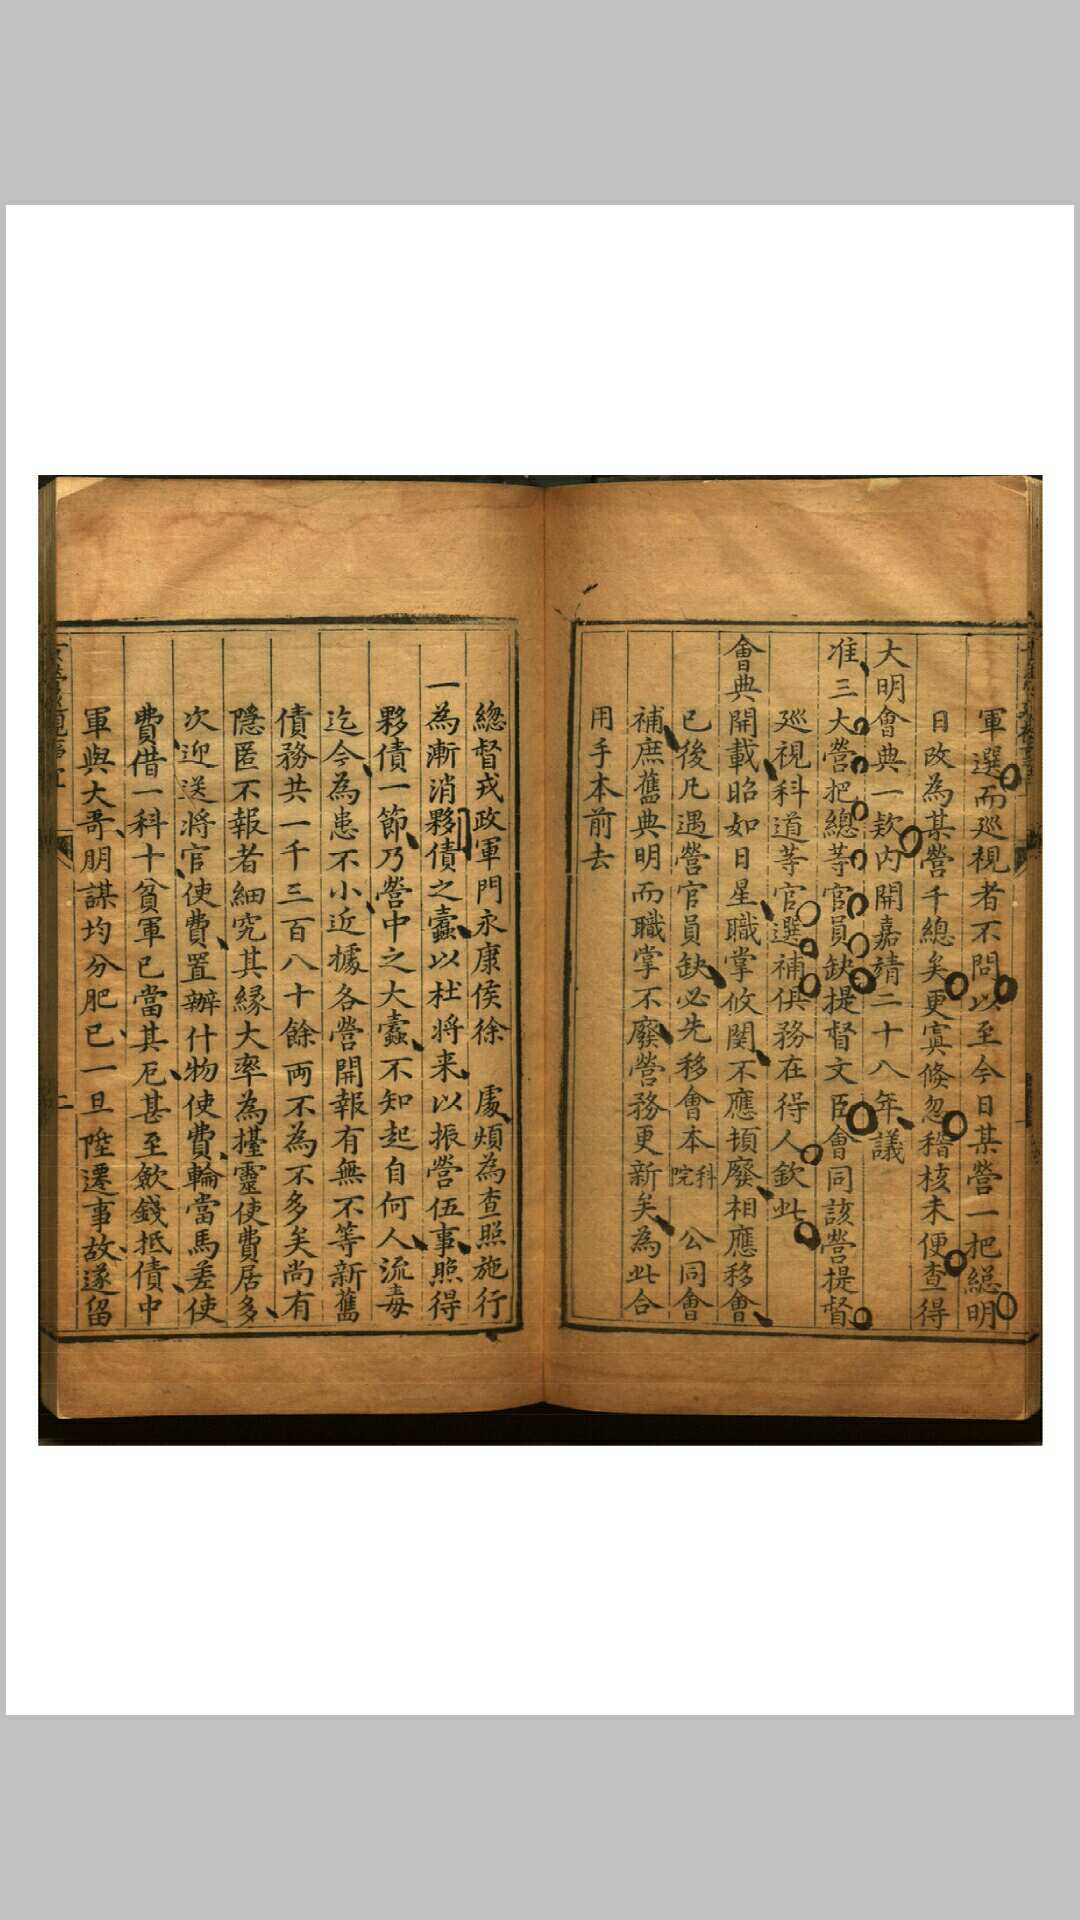 軍選而廵視者不問以至今日某營一把縂明
日改為某營千總矣更寘倐忽稽核未便查得
大明會典一款內開嘉靖二十八年議
准三大營把總等官員缺提督文臣會同該營提督
廵視科道等官選補俱務在得人欽此
會典開載昭如日星職掌攸関不應頓廢相應移會
已後凡遇營官員缺必先移會本科院 公同會
補庶舊典明而職掌不廢營務更新矣為此合
用手本前去
總督戎政軍門永康侯徐 處煩為查照施行
一為漸消夥債之蠹以杜將来以振營伍事照得
夥債一節乃營中之大蠹不知起自何人流毒
迄今為患不小近據各營開報有無不等新舊
債務共一千三百八十餘両不為不多矣尚有
隱匿不報者細究其緣大率為擡靈使費居多
次迎送將官使費置辦什物使費輪當馬差使
費借一科十貧軍已當其厄甚至歛錢抵債中
軍與大哥朋謀均分肥己一旦陞遷事故遂留
二